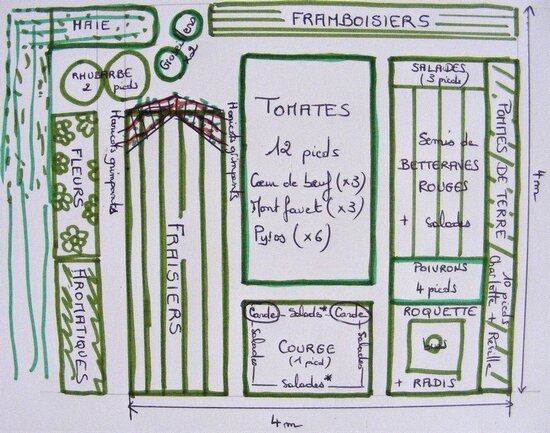 HAIE
Groseillers
x2
FRAMBOISIERS
RHUBARBE
2 pieds
Haricots grimpants
Haricots grimpants
FLEURS
AROMATIQUES
FRAISIERS
TOMATES
12 pieds
Cœur de bœuf (x3)
Montfavet (x3)
Pyros (x6)
Carde Salades* Carde
Salades
Salades
COURGE
(1 pied)
Salades*
SALADES
(3 pieds)
Semis de
BETTERAVES
ROUGES
+ Salades
POIVRONS
4 pieds
ROQUETTE
+ RADIS
POMMES DE TERRE
10 pieds
Charlotte +
4m
4m